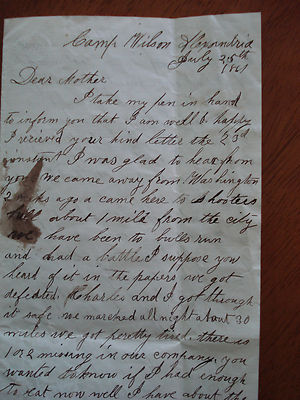 Camp Wilson Alexandria
July 25th
1861
Dear Mother
I take my pen in hand
to inform you that I am well & happy
I recieved your kind letter the 23d
instant I was glad to hear from
you we came away from Washington
2 weeks ago & came here to Shooters
hill about 1 mile from the city
we have been to bulls run
and had a battle I suppose you
heard of it in the papers we got
defeated. Charles and I got through
it safe we marched all night about 30
miles we got peretty tired. there is
1 or 2 missing in our company. you
wanted to know if I had enough
to eat now well I have about the